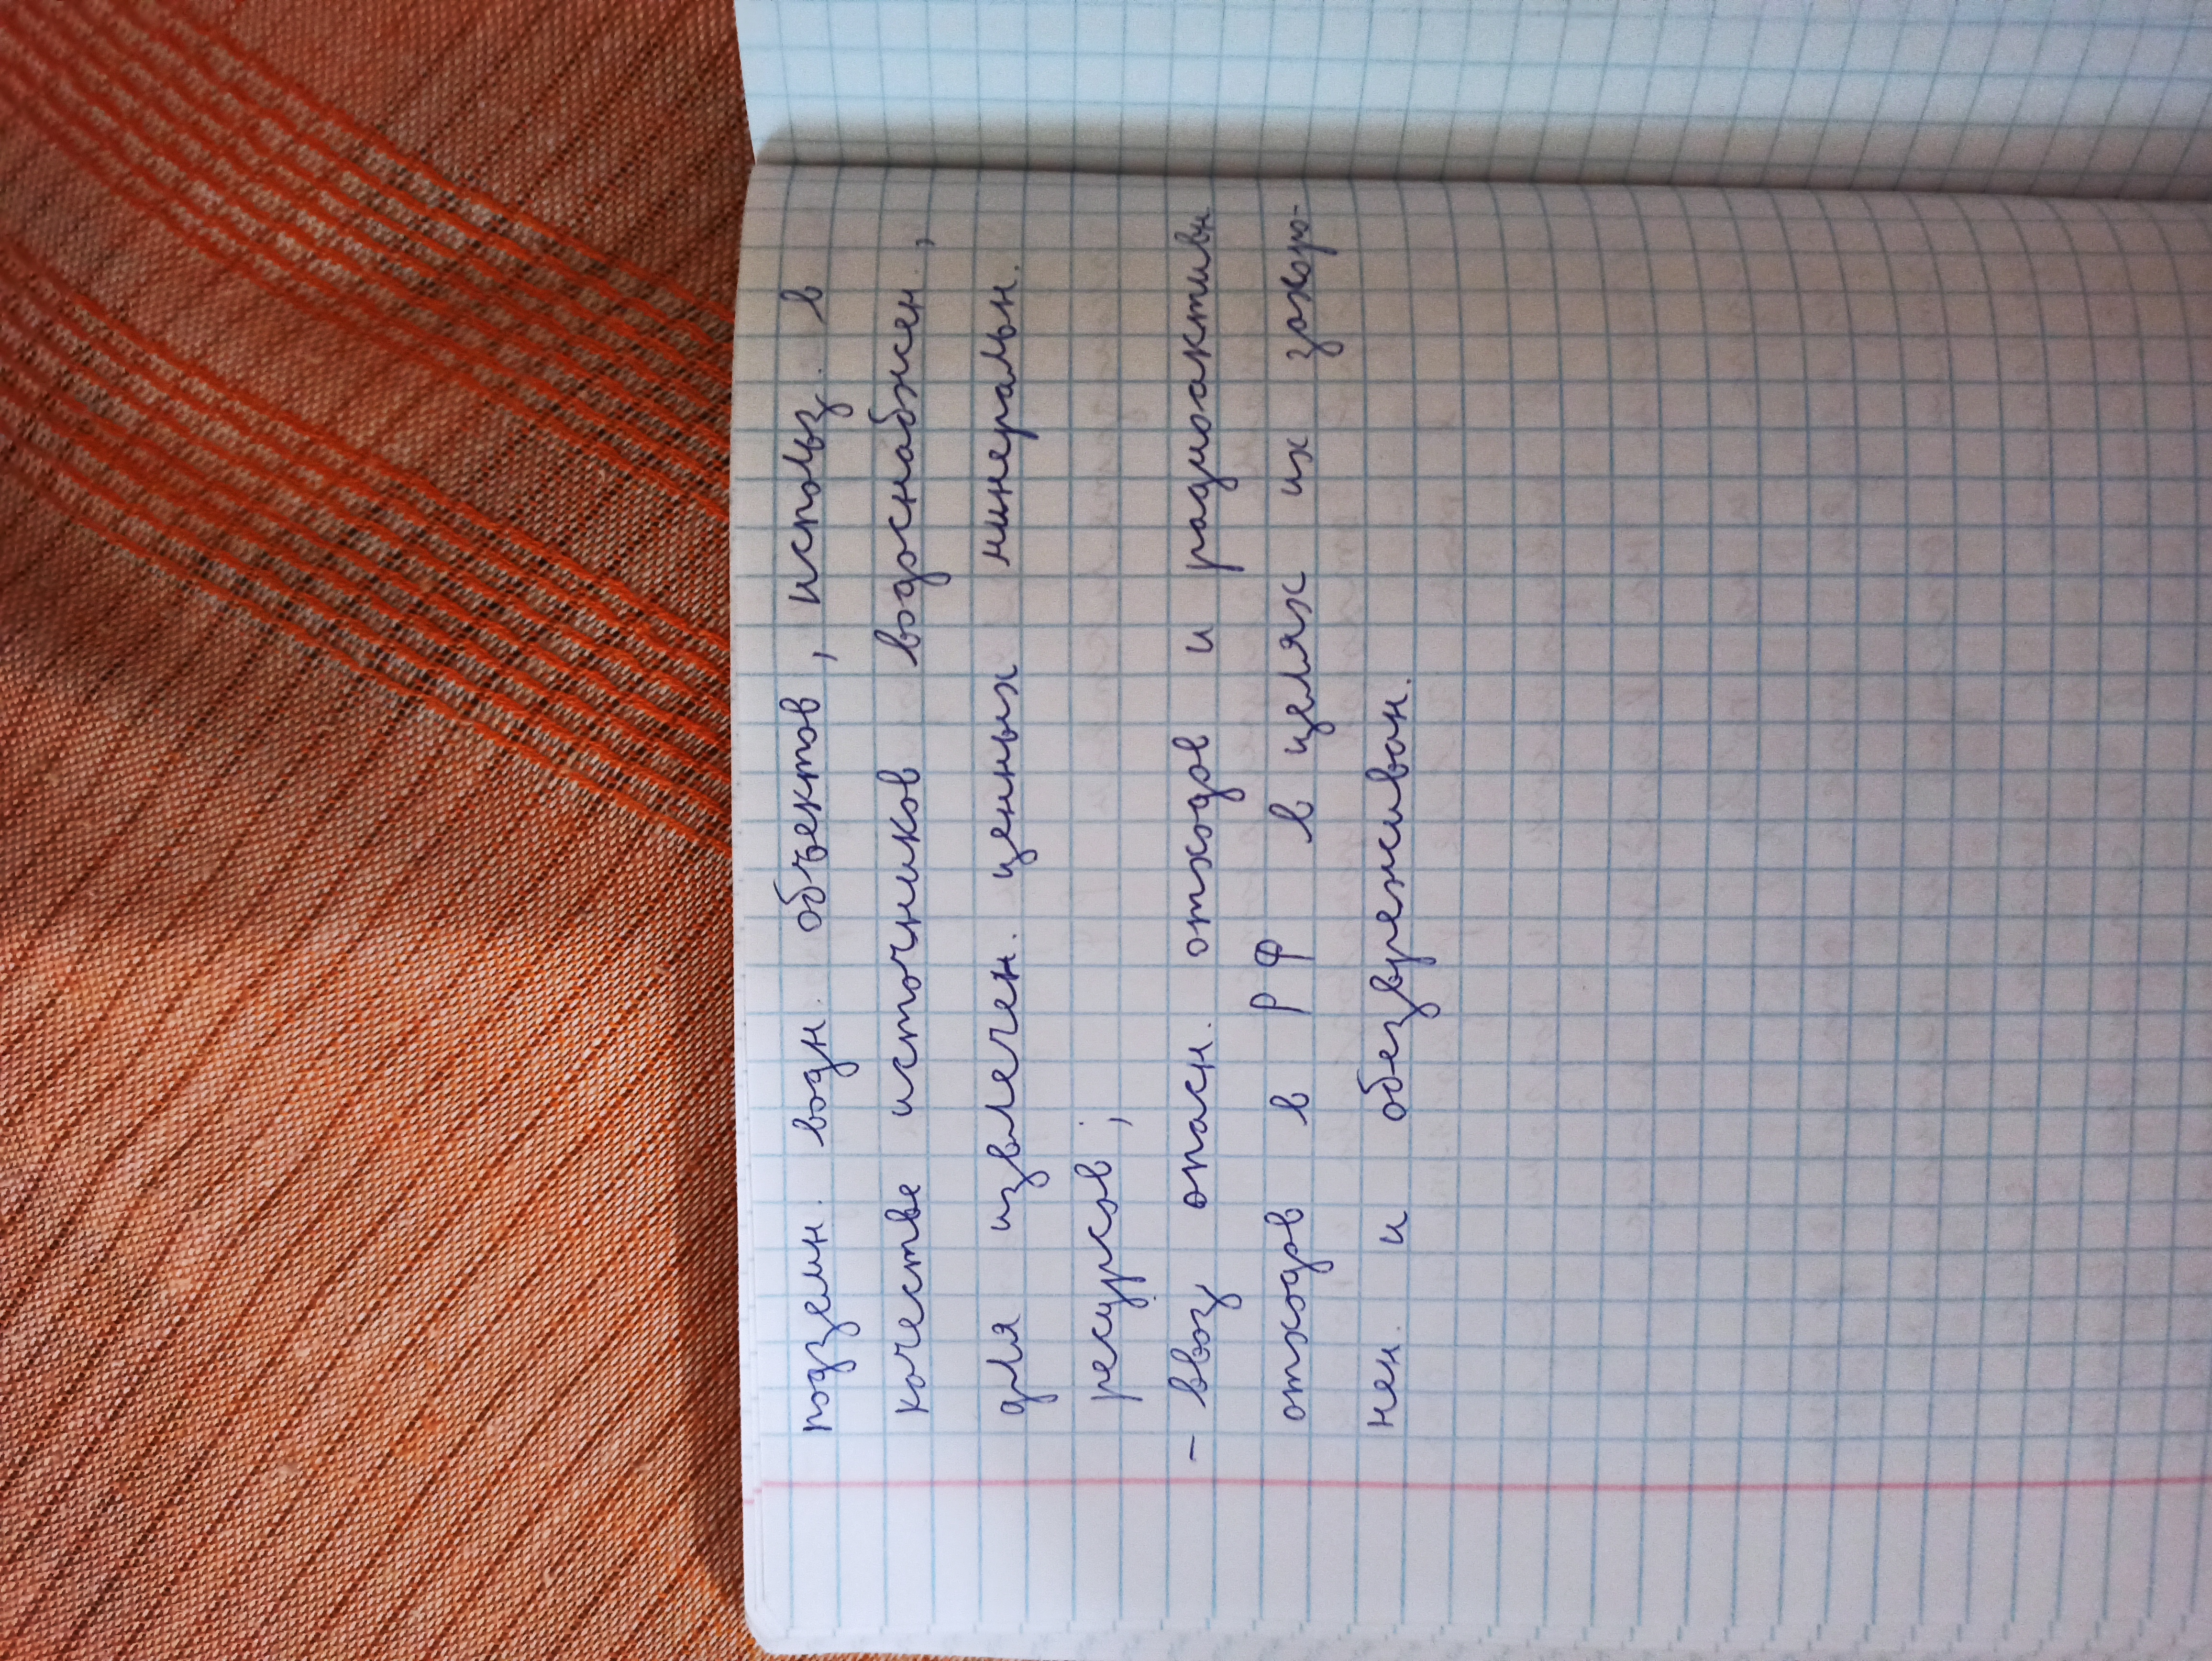 подземн. водн. объектов, использ. в
качестве источников водоснабжен.,
для извлечен. ценных минеральн.
ресурсов;
- ввоз опасн. отходов и радиоактивн.
отходов в РФ в целях их захоро-
нен. и обезвреживан.